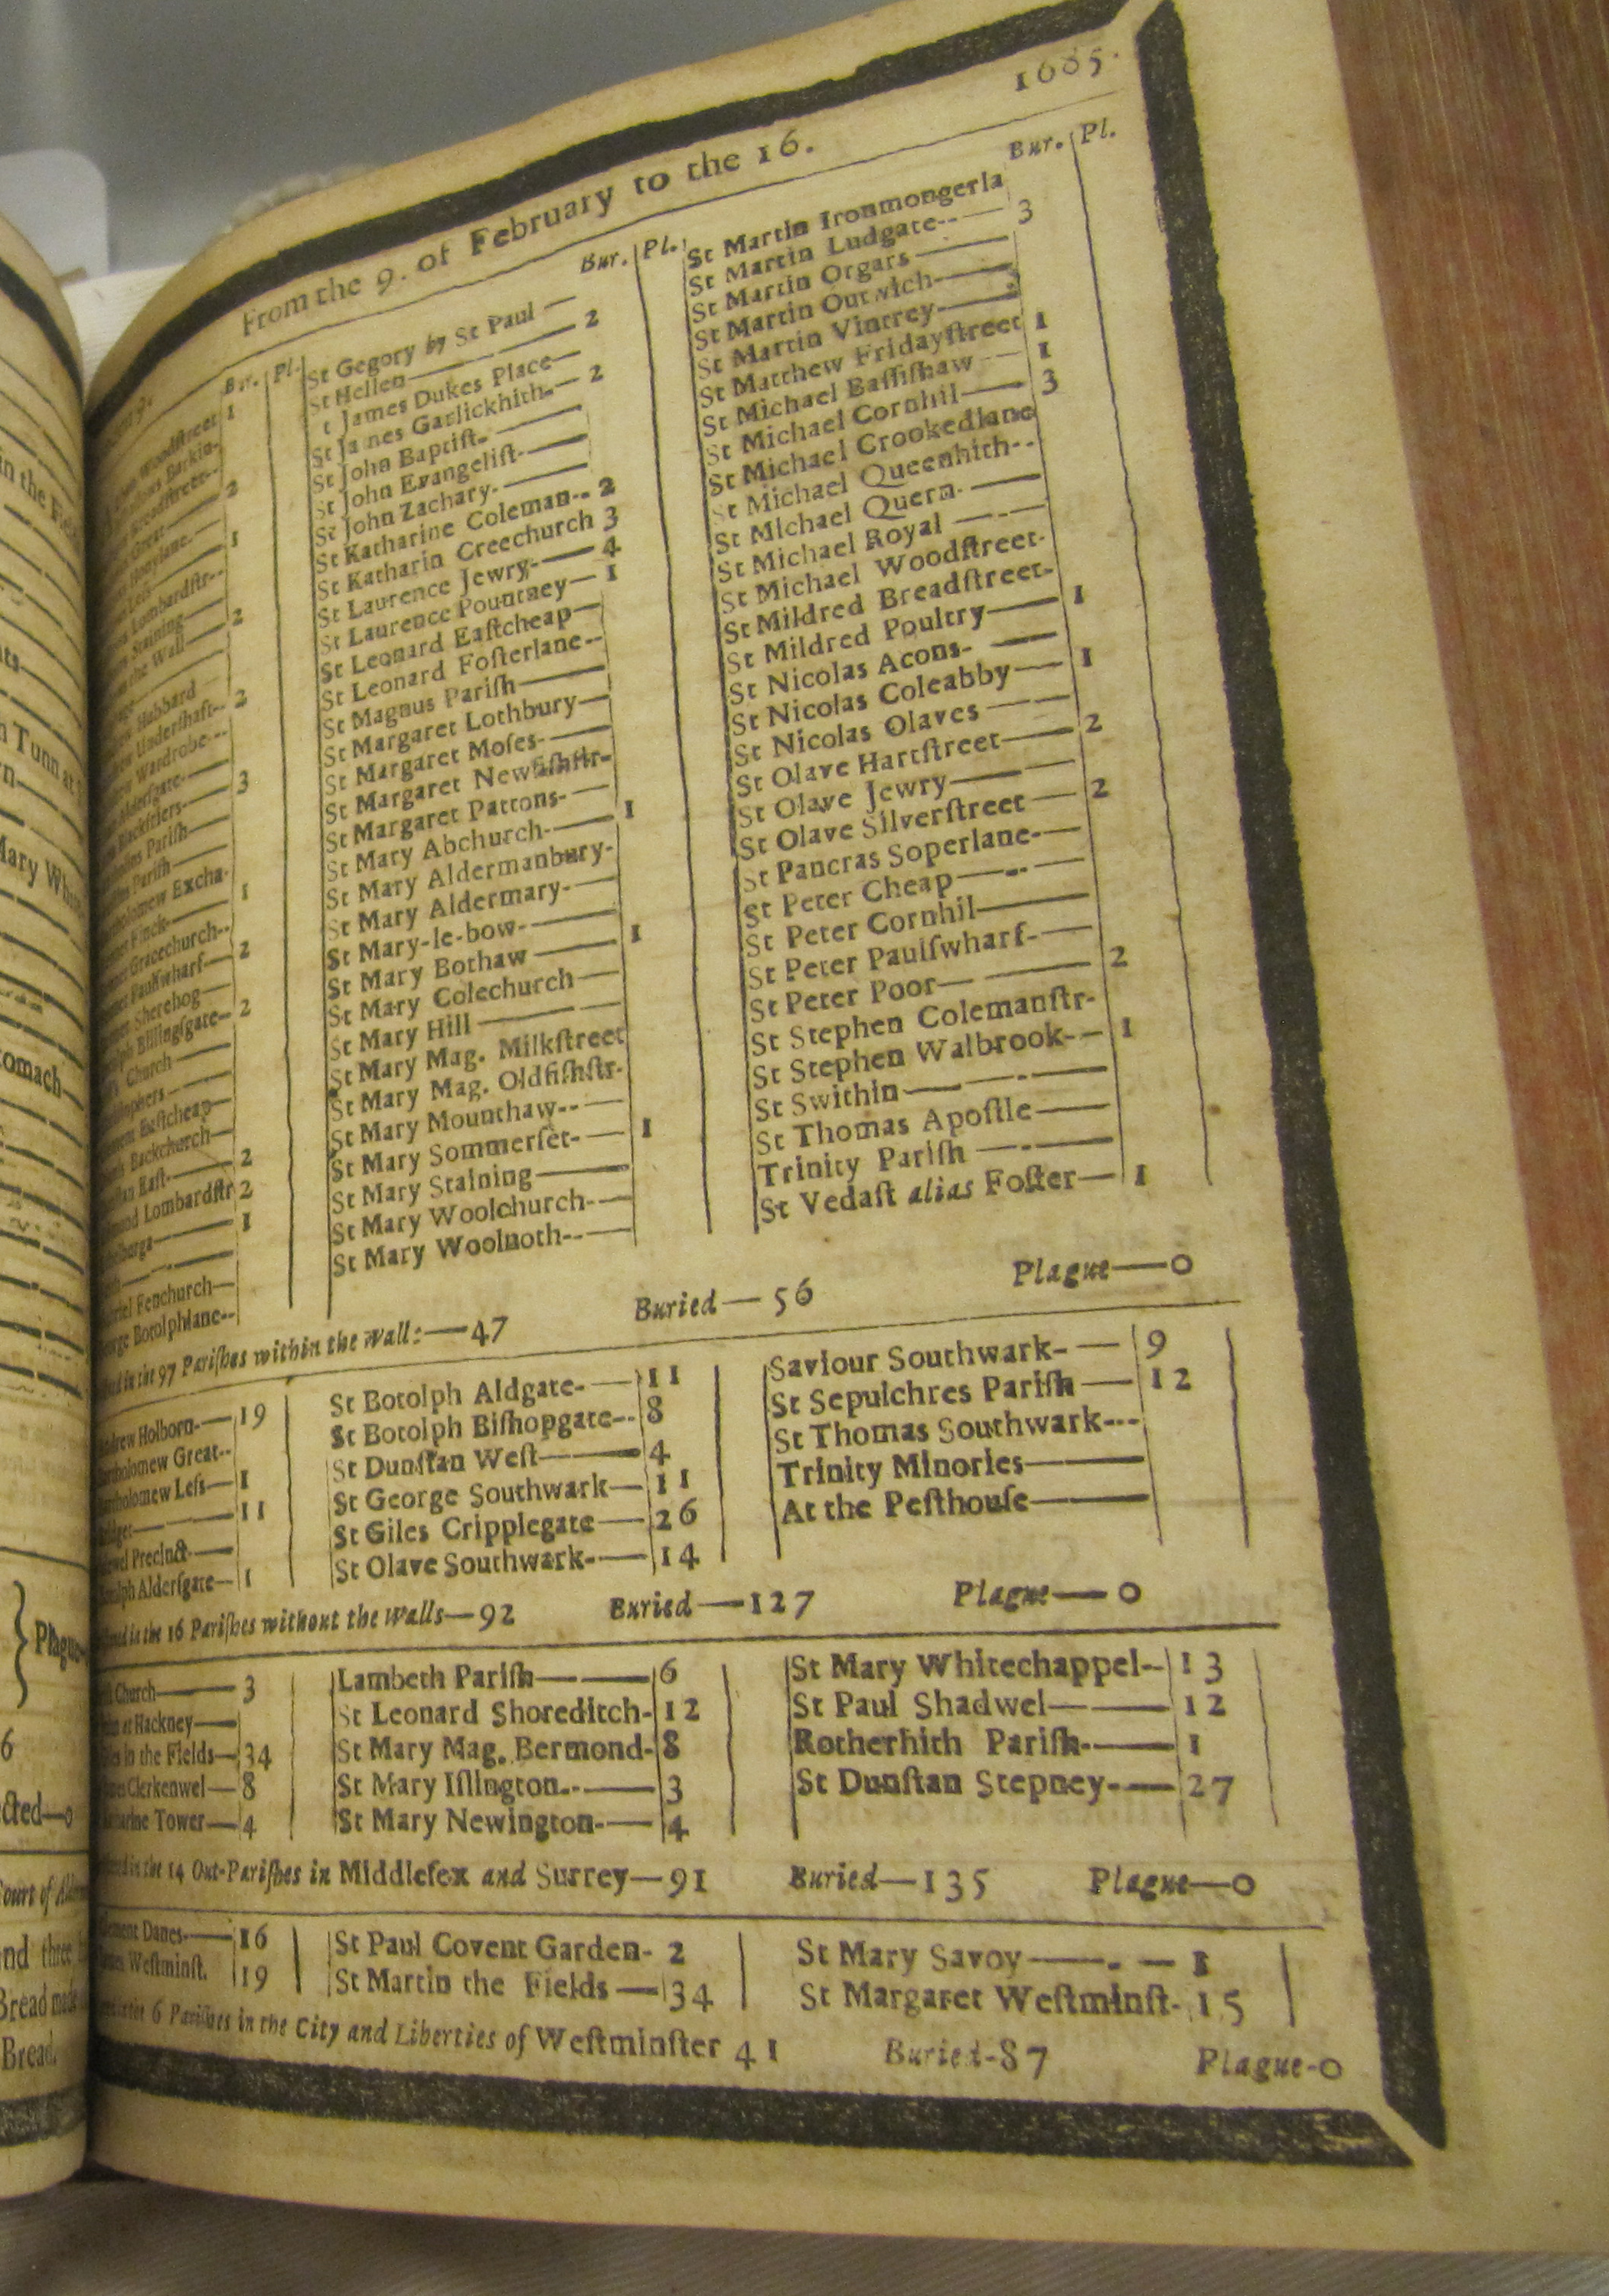 From the 9. of February to the 16.
1665.
Bur. Pl.
Woodstreet 1
Barkin-
Breadstreet--
Great 2
Honylane.
Less 1
Lombardstr--
Staining
the Wall 2
Hubbard
Undershaft-- 2
Wardrobe---
Aldersgate-
Blackfriers- 3
Parish
Parish
Excha-
Finck 1
Gracechurch--
Paulswharf 2
Sherehog
Billingsgate- 2
Church
Eastcheap
Backchurch
East- 2
Lombardstr 2
1
Fenchurch
Botolphlane--
Bur. Pl.
St Gegory by St Paul —
St Hellen — 2
t James Dukes Place—
St Ja nes Garlickhith-— 2
St John Baptist-——
St John Evangelist-——
St John Zachary.——
St Katharine Coleman-- 2
St Katharin Creechurch 3
St Laurence Jewry-— 4
St Laurence Pountney— 1
St Leonard Eastcheap—
St Leonard Fosterlane--
St Magnus Parish——
St Margaret Lothbury—
St Margaret Moses-——
St Margaret Newfishstr-
St Margaret Pattons-—
St Mary Abchurch-—— 1
St Mary Aldermanbury-
St Mary Aldermary-—
St Mary-le-bow-——
St Mary Bothaw —— 1
St Mary Colechurch —
St Mary Hill ——
St Mary Mag. Milkstreet
St Mary Mag. Oldfishstr-
St Mary Mounthaw--—
St Mary Sommerset-— 1
St Mary Staining——
St Mary Woolchurch-—
St Mary Woolnoth--—
Bur. Pl.
St Martin Ironmongerla
St Martin Ludgate--— 3
St Martin Orgars ——
St Martin Outwich-——
St Martin Vintrey——
St Matthew Fridaystreet 1
St Michael Bassishaw — 1
St Michael Cornhil—— 3
St Michael Crookedlane
St Michael Queenhith--
St Michael Quern-——
St Michael Royal —-—
St Michael Woodstreet-
St Mildred Breadstreet-
St Mildred Poultry—— 1
St Nicolas Acons- ——
St Nicolas Coleabby— 1
St Nicolas Olaves ——
St Olave Hartstreet—— 2
St Olave Jewry———
St Olave Silverstreet — 2
St Pancras Soperlane-—
St Peter Cheap——
St Peter Cornhil———
St Peter Paulswharf-—
St Peter Poor—— 2
St Stephen Colemanstr-
St Stephen Walbrook-— 1
St Swithin———
St Thomas Apostle——
Trinity Parish —-—
St Vedast alias Foster— 1
in the 97 Parishes within the Wall:—47 Buried—56 Plague—0
Holborn-— 19
Great--
Bartholomew Less— 1
11
Precinct-—
Aldersgate— 1
St Botolph Aldgate-— 11
St Botolph Bishopgate-- 8
St Dunstan West—— 4
St George Southwark— 11
St Giles Cripplegate— 26
St Olave Southwark-— 14
Saviour Southwark-— 9
St Sepulchres Parish— 12
St Thomas Southwark---
Trinity Minories——
At the Pesthouse——
in the 16 Parishes without the Walls—92 Buried—127 Plague—0
Church—— 3
at Hackney—
in the Fields— 34
Clerkenwel— 8
Tower— 4
Lambeth Parish—— 6
St Leonard Shoreditch- 12
St Mary Mag. Bermond- 8
St Mary Islington--— 3
St Mary Newington-— 4
St Mary Whitechappel-- 13
St Paul Shadwel—— 12
Rotherhith Parish-—— 1
St Dunstan Stepney-— 27
in the 14 Out-Parishes in Middlesex and Surrey—91 Buried—135 Plague—0
Danes-— 16
Westminst. 19
St Paul Covent Garden- 2
St Martin the Fields — 34
St Mary Savoy——.— 1
St Margaret Westminst- 15
6 Parishes in the City and Liberties of Westminster 41 Buried-87 Plague-0
in the Fiel
Tunn at
Mary Whi
tomach
Plague
6
cted—0
Court of
nd three
Bread made
Bread.